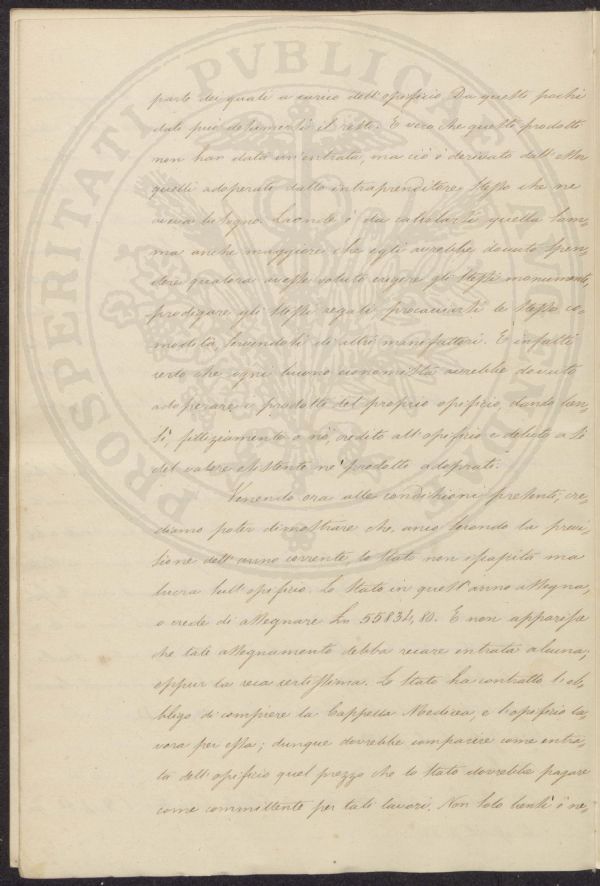 parte dei quali a carico dell'opificio Da questi pochi
dati può desumersi il resto. È vero che questi prodotti
non han dato un'entrata, ma ciò è derivato dall'esser
quelli adoperati dallo intraprenditore stesso che ne
aveva bisogno. Laonde è da calcolarsi quella som=
ma anche maggiore che egli avrebbe dovuto spen=
dere qualora avesse voluto erigere gli stessi monumenti,
prodigare gli stessi regali procacciarsi le stesse co=
modità, servendosi di altri manifattori. E infatti
certo che ogni buono economista avrebbe dovuto
adoperare i prodotti del proprio opificio, dando ben=
sì, fittiziamente o no, credito all'opificio e debito a se
del valore esistente ne' prodotti adoprati.
Venendo ora alle condizioni presenti, cre=
diamo poter dimostrare che, anco secondo la previ=
sione dell'anno corrente, lo Stato non iscapita ma
lucra sull'opificio. Lo Stato in quest'anno assegna,
o crede di assegnare Ln 55834,80. E non apparisce
che tale assegnamento debba recare entrata alcuna;
eppur la reca certissima. Lo Stato ha contratto l'ob=
bligo di compiere la Cappella Medicea, e l'opificio la=
vora per essa; dunque dovrebbe comparire come entra=
ta dell'opificio quel prezzo che lo Stato dovrebbe pagare
come committente per tali lavori. Non solo bensì è ne=
PROSPERITATI PVBLICAE AVGENDAE